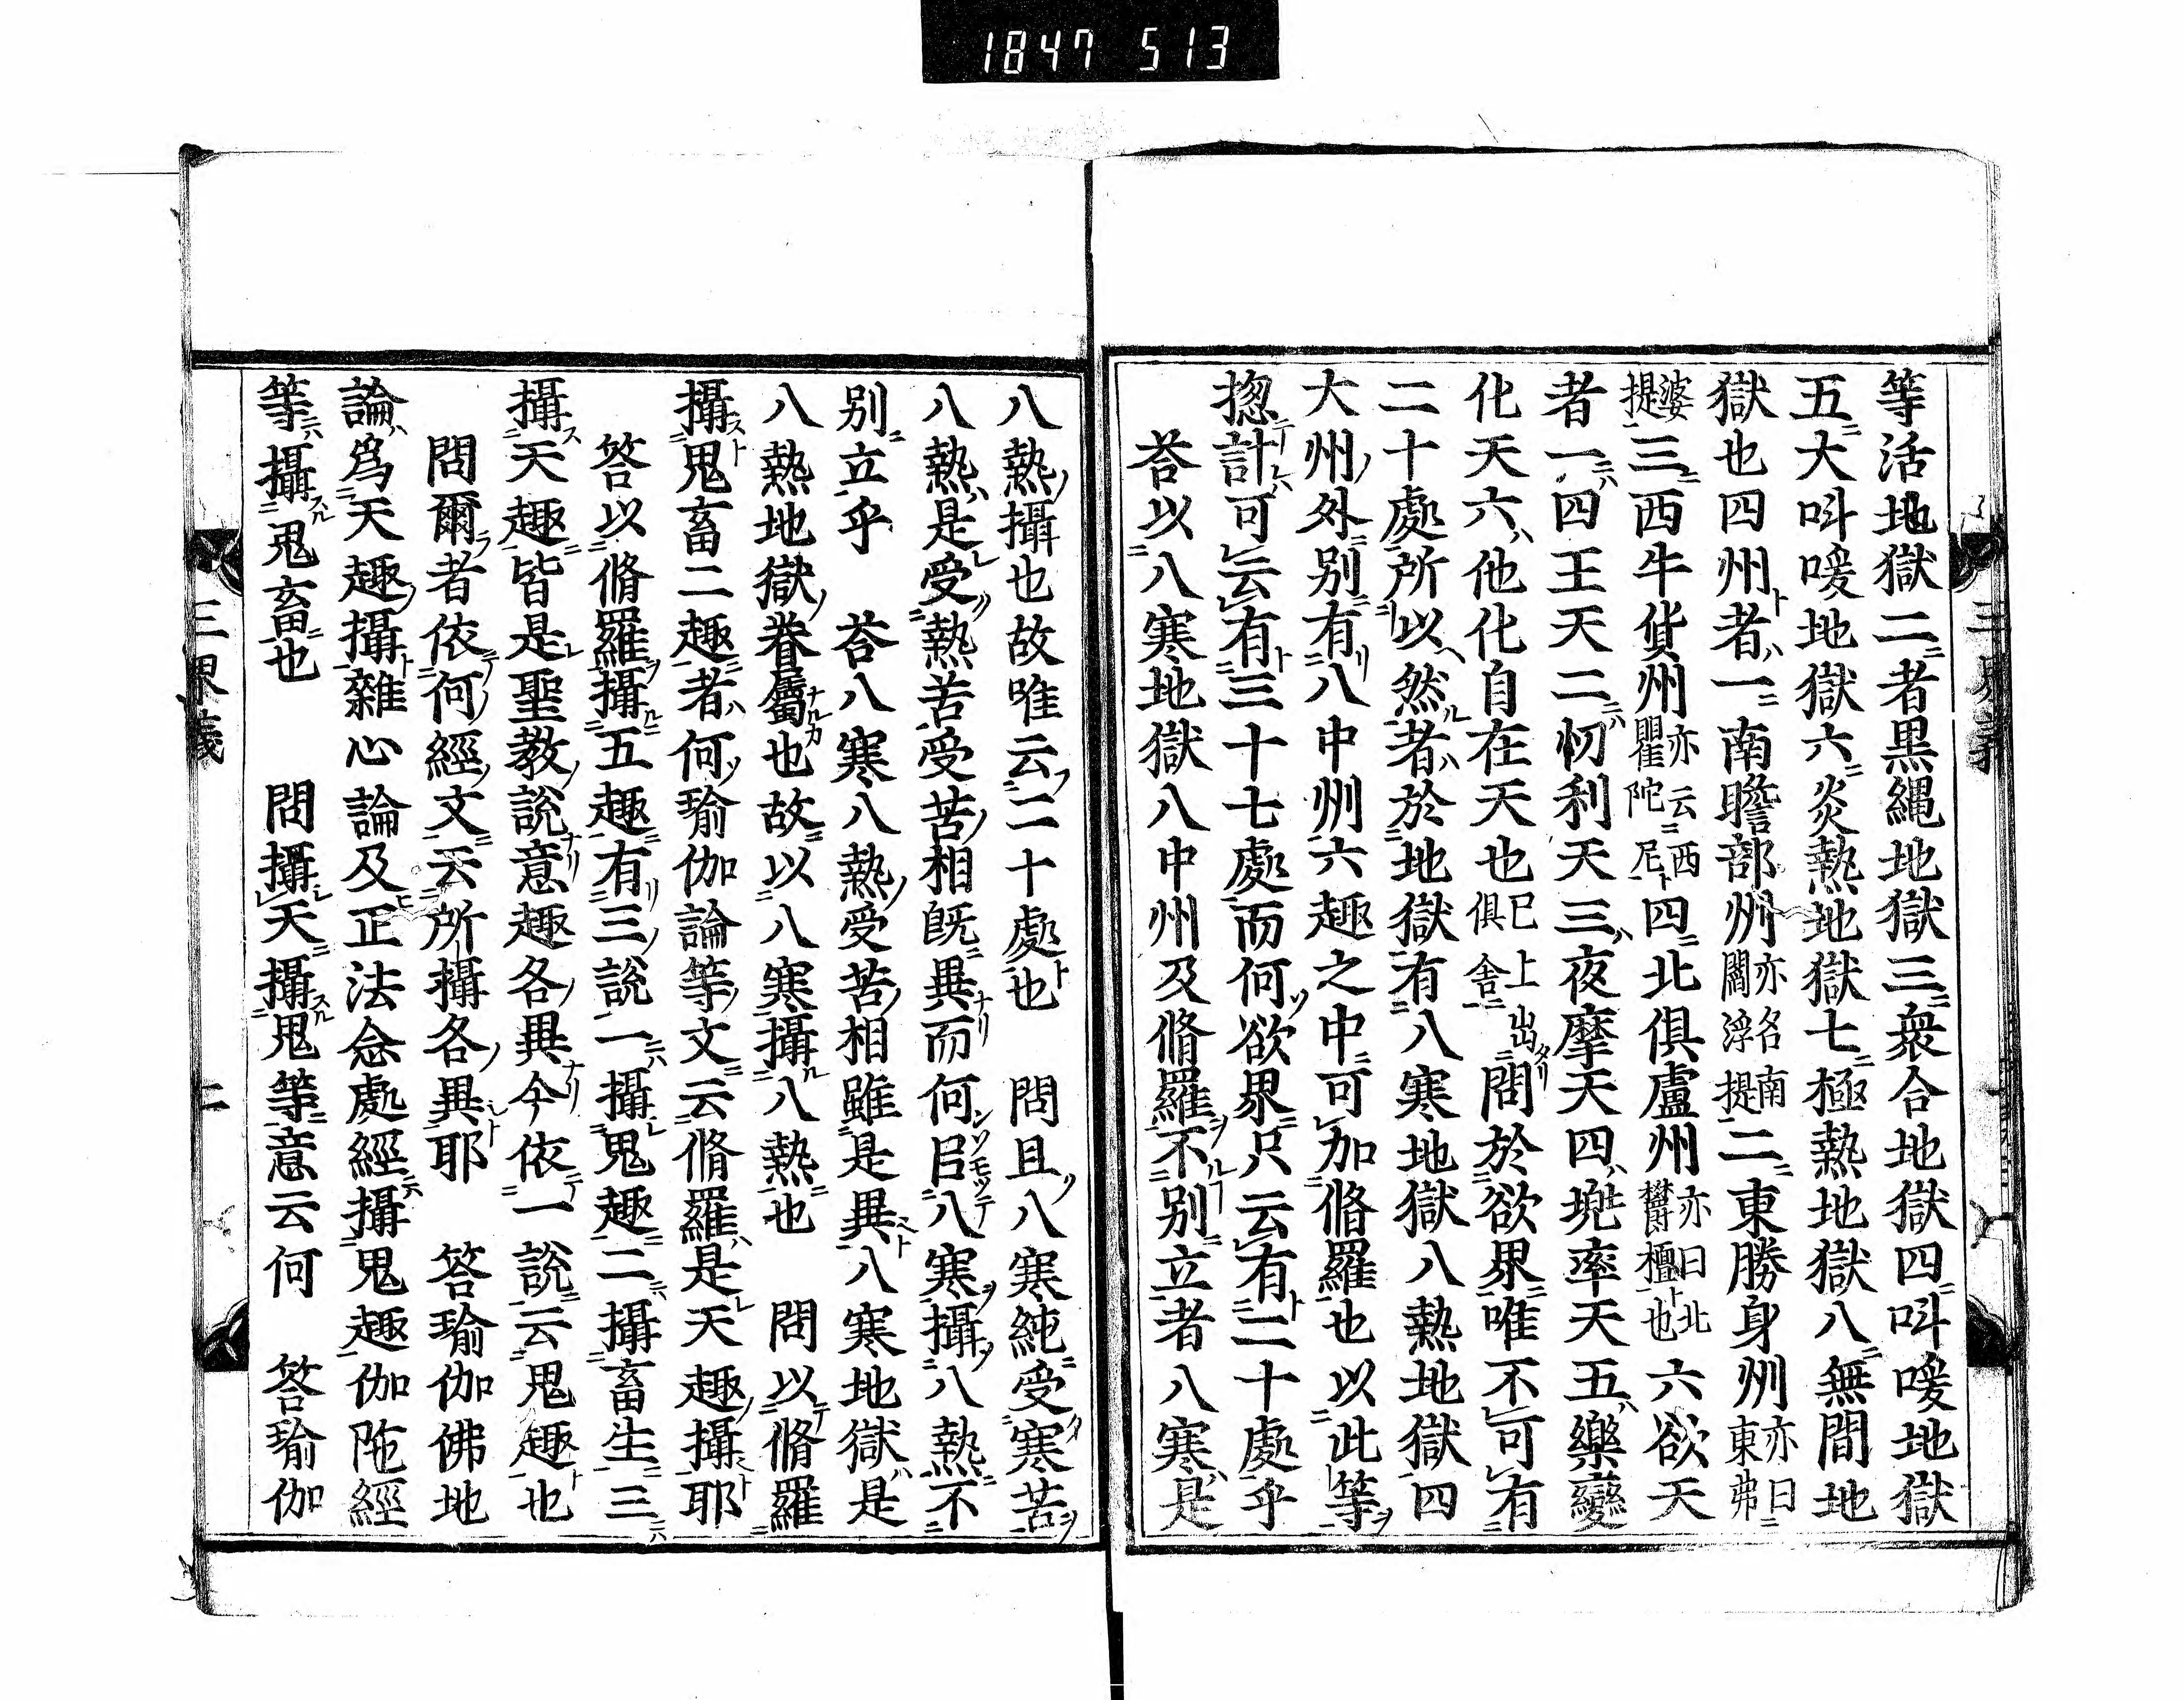 1847 513
等活地獄二者黒縄地獄三衆合地獄四叫喚地獄
五大叫喚地獄六炎熱地獄七極熱地獄八無間地
獄也四州者一南瞻部州亦名南閻浮提二東勝身州亦曰東弗
婆提三西牛貨州亦云西瞿陀尼四北俱盧州亦曰北欝檀也六欲天
者一四王天二忉利天三夜摩天四兜率天五樂變
化天六他化自在天也已上出俱舎問於欲界唯不可有
二十處所以然者於地獄有八寒地獄八熱地獄四
大州外別有八中州六趣之中可加脩羅也以此等
揔計可云有三十七處而何欲界只云有二十處乎
荅以八寒地獄八中州及脩羅不別立者八寒是
八熱攝也故唯云二十處也　問且八寒純受寒苦
八熱是受熱苦受苦相旣異而何㠯八寒攝八熱不
別立乎　荅八寒八熱受苦相雖是異八寒地獄是
八熱地獄眷屬也故以八寒攝八熱也　問以脩羅
攝鬼畜二趣者何瑜伽論等文云脩羅是天趣攝耶
答以脩羅攝五趣有三說一攝鬼趣二攝畜生三
攝天趣皆是聖教說意趣各異今依一說云鬼趣也
問爾者依何經文云所攝各異耶　答瑜伽佛地
論爲天趣攝雜心論及正法念處經攝鬼趣伽陁經
等攝鬼畜也　問攝天攝鬼等意云何　答瑜伽
三界義
二